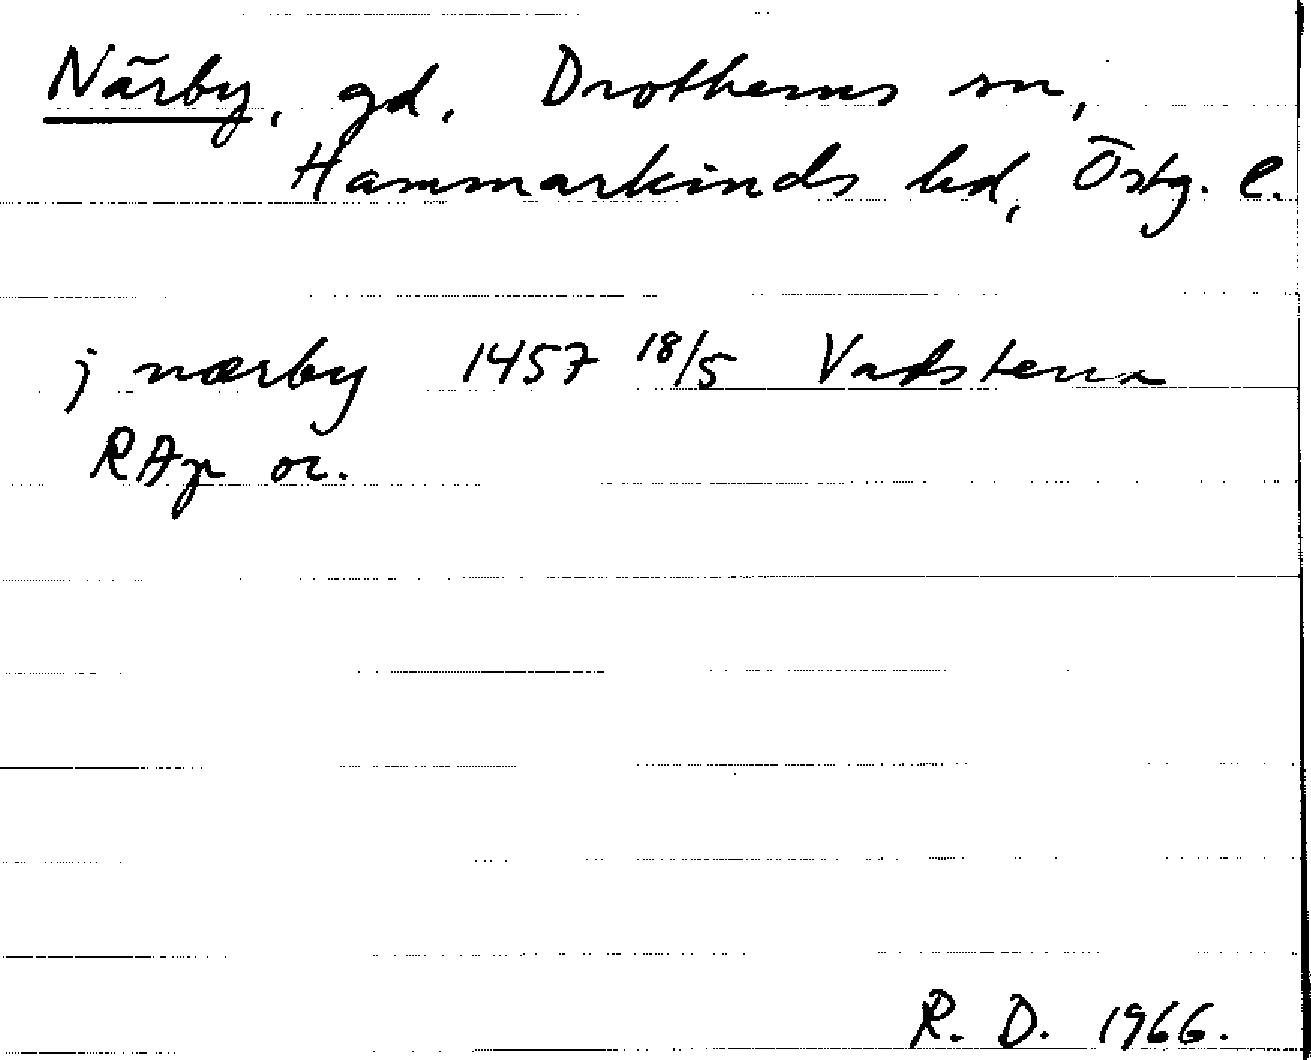 Närby, gd, Drothems sn,
Hammarkinds hd, Östg. l.
j nærby 1457 18/5 Vadstena
RAp or.
R. D. 1966.